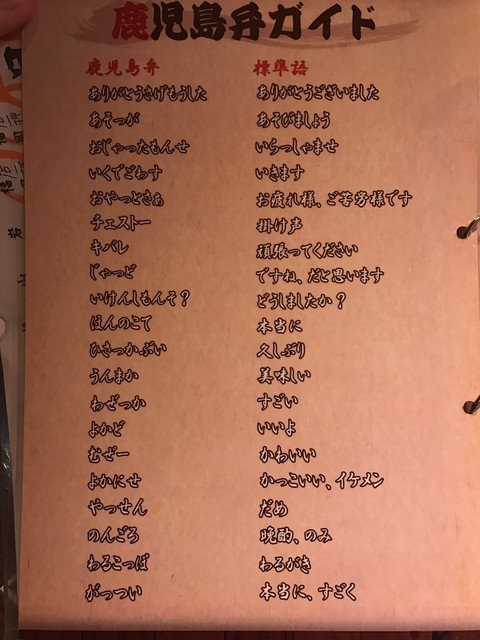 鹿児島弁ガイド
鹿児島弁 標準語
ありがとうさげもうした ありがとうございました
あそっが あそびましょう
おじゃったもんせ いらっしゃませ
いくでごわす いきます
おやっとさぁ お疲れ様、ご苦労様です
チェストー 掛け声
キバレ 頑張ってください
じゃっど ですね、だと思います
いけんしもんそ? どうしましたか?
ほんのこて 本当に
ひさっかぶい 久しぶり
うんまか 美味しい
わぜっか すごい
よかど いいよ
むぜー かわいい
よかにせ かっこいい、イケメン
やっせん だめ
のんごろ 晩酌、のみ
わるこっぼ わるがき
がっつい 本当に、すごく